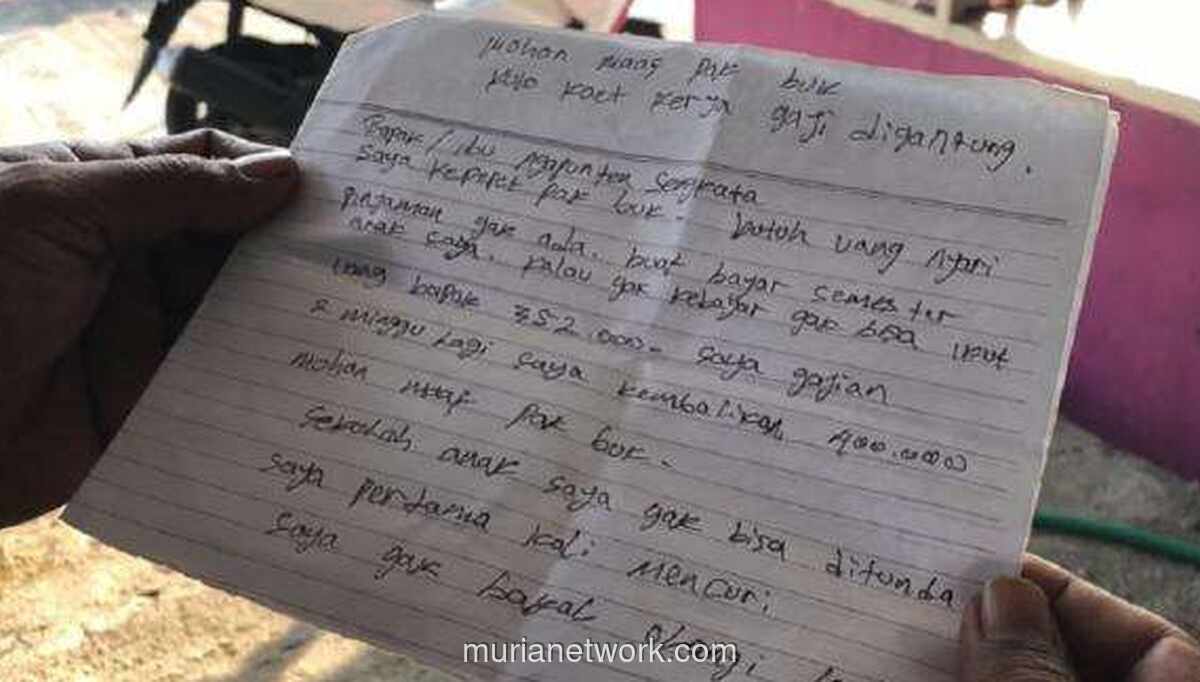 Mohon maaf pak buk
kerja gaji digantung.
Bapak / ibu ngapunten
saya kepepet pak buk. butuh uang nyari
pinjaman gak ada. buat bayar semester
anak saya. kalau gak kebayar gak bisa ikut
uang bapak 352.000. saya gajian
2 minggu lagi saya kembalikan 400.000
mohon maaf pak buk.
sekolah anak saya gak bisa ditunda
saya pertama kali mencuri
saya gak bakal
murianetwork.com